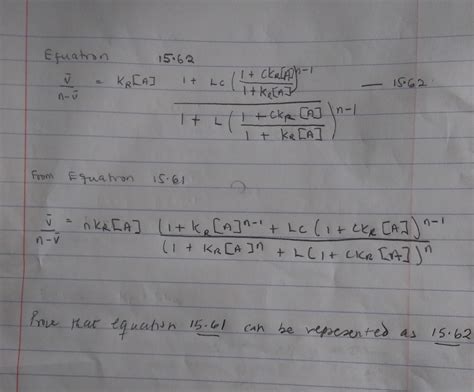 Equation 15.62
v̄/(n-v̄) = K_R[A] (1 + Lc ((1 + CK_R[A])/(1 + K_R[A]))^(n-1))/(1 + L ((1 + CK_R[A])/(1 + K_R[A]))^(n-1)) — 15.62
From Equation 15.61
v̄/(n-v̄) = nK_R[A] ((1 + K_R[A]^(n-1) + LC (1 + CK_R[A])^(n-1))/((1 + K_R[A]^n + L(1 + CK_R[A])^n)
Prove that equation 15.61 can be represented as 15.62